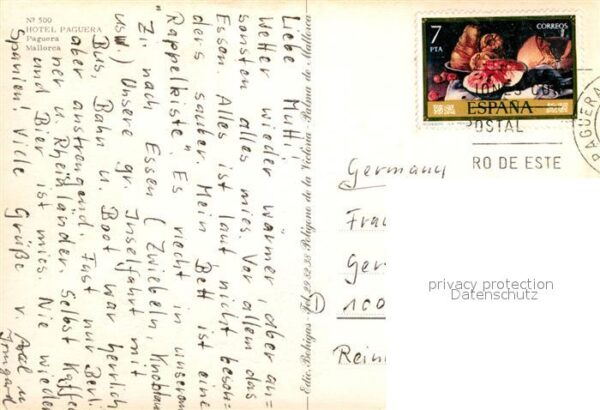 Nº 500
HOTEL PAGUERA
Paguera
Mallorca
Liebe Mutti!
Wetter wieder wärmer, aber an-
sonsten alles mies. Vor allem das
Essen. Alles ist laut nicht beson-
ders sauber. Mein Bett ist eine
"Rappelkiste". Es riecht in unserem
"Zi. nach Essen (Zwiebeln, Knoblau
usw.) Unsere gr. Inselfahrt mit
Bus, Bahn u. Boot war herrlich
aber anstrengend. Fast nur Berli
ner u. Rheinländer. Selbst Kaffee
und Bier ist mies. Nie wieder
Spanien. Viele Grüße v.
Irmgard
7
PTA
CORREOS
ESPAÑA
IONES CON
POSTAL
RO DE ESTE
PAGUERA
Germany
Frau
Ger
100
Rein
privacy protection
Datenschutz